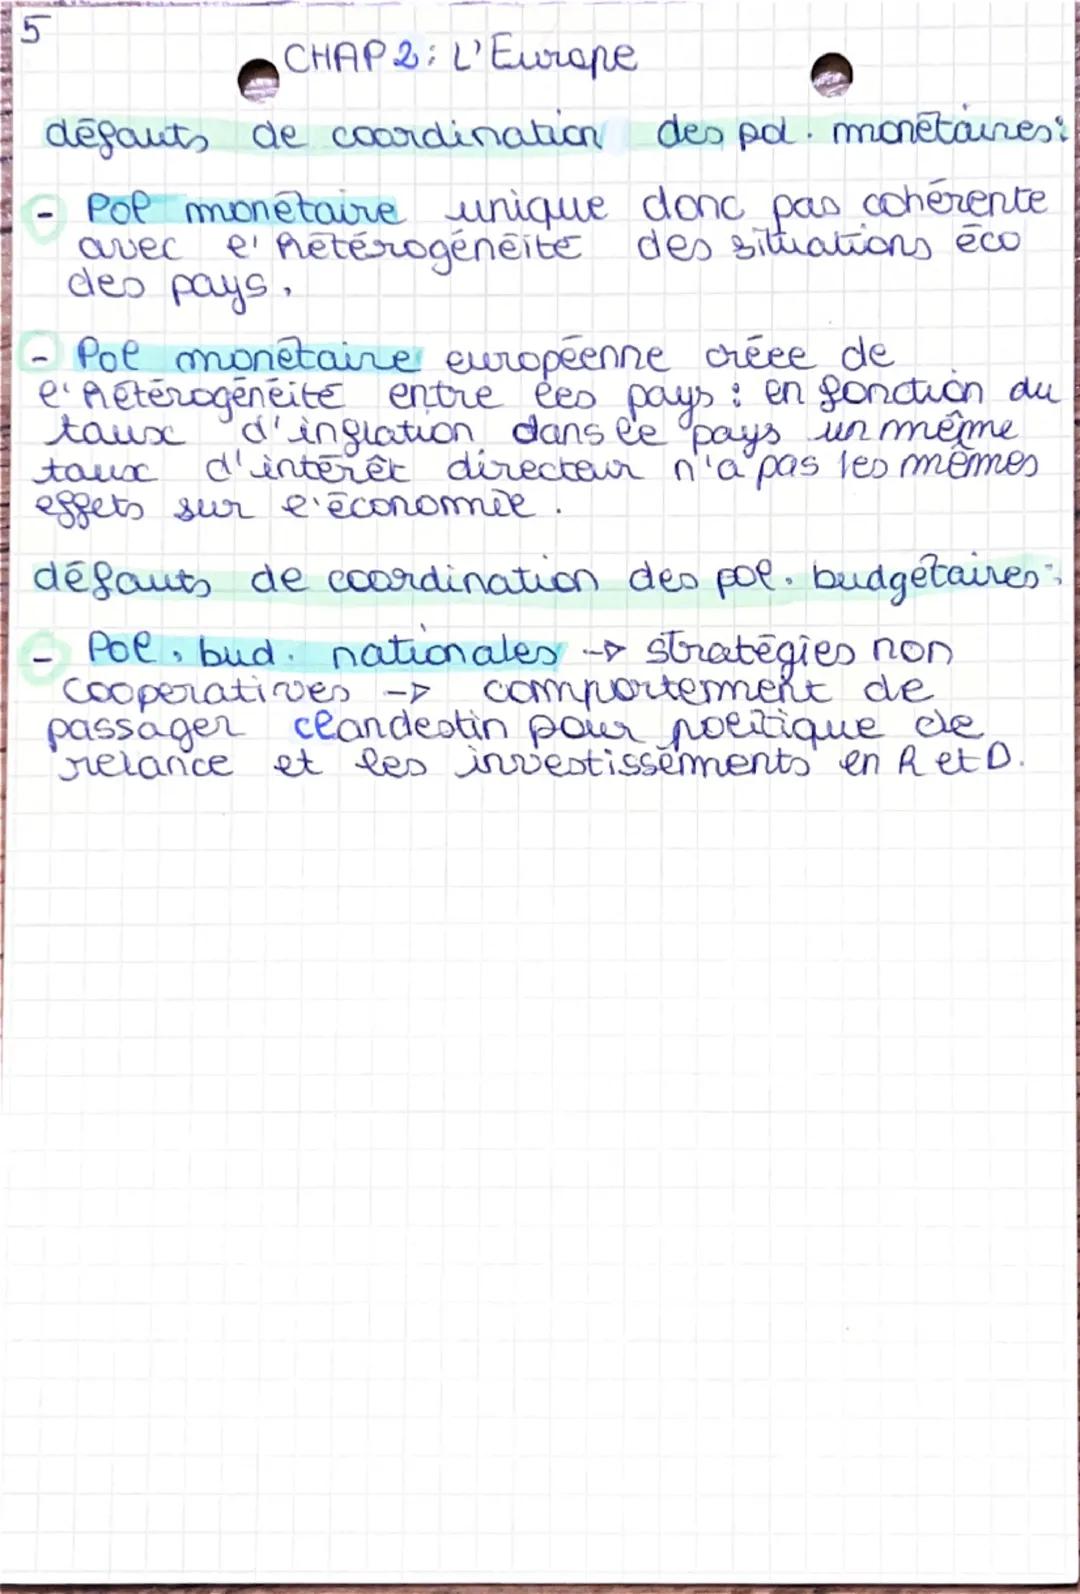 5
CHAP 2: L'Europe
défauts de coordination des pol. monétaires:
- Pol monétaire unique donc pas cohérente
avec l'hétérogénéité des situations éco
des pays.
- Pol monétaire européenne créée de
l'hétérogénéité entre les pays : en fonction du
taux d'inflation dans le pays un même
taux d'intérêt directeur n'a pas les mêmes
effets sur l'économie.
défauts de coordination des pol. budgétaires:
- Pol. bud. nationales -> stratégies non
cooperatives -> comportement de
passager clandestin pour politique de
relance et les investissements en R et D.